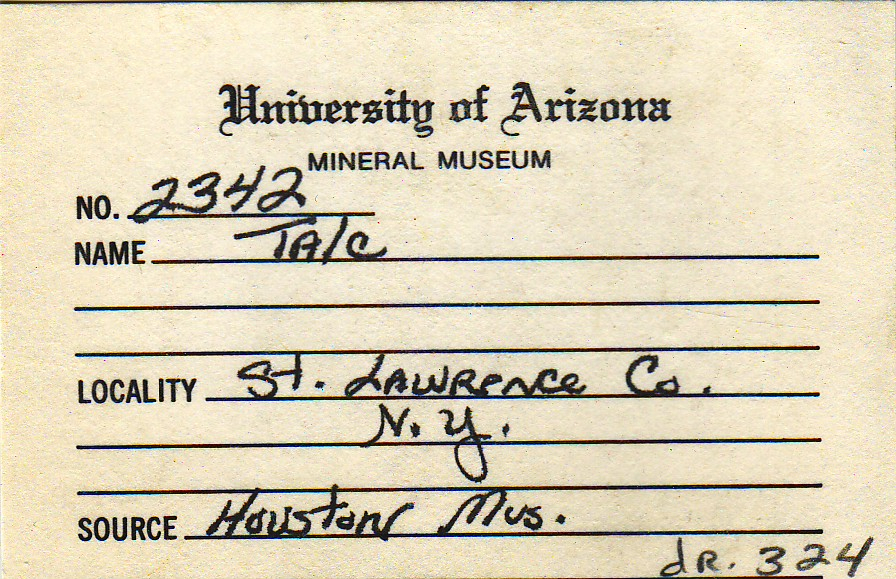 University of Arizona
MINERAL MUSEUM
NO. 2342
NAME Talc
LOCALITY St. Lawrence Co.
N.Y.
SOURCE Houston Mus.
dr. 324